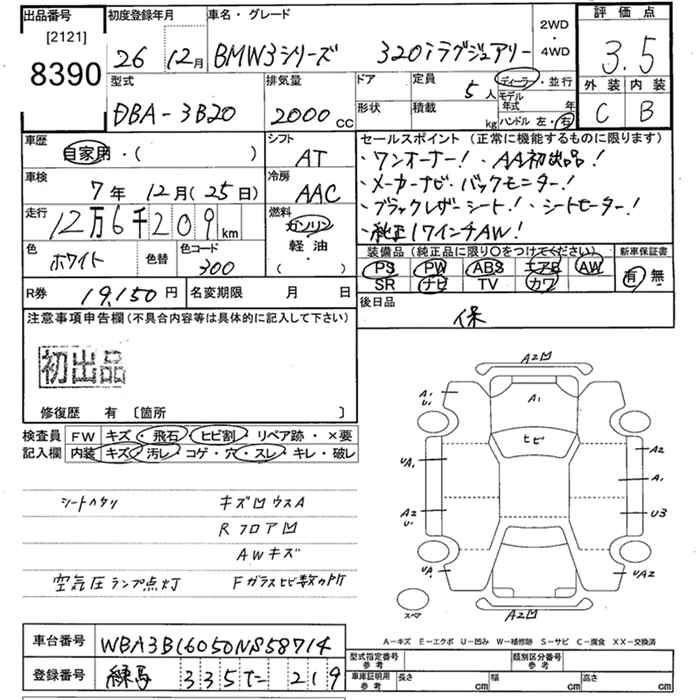 出品番号
[2121]
8390
初度登録年月
26 12月
車名・グレード
BMW3シリーズ 320iラグジュアリー
2WD
・
4WD
評価点
3.5
外装 内装
C B
型式
DBA-3B20
排気量
2000 cc
ドア
形状
定員
5人
積載
kg
ディーラー・並行
モデル年式 年
ハンドル 左・右
車歴
自家用・( )
シフト
AT
車検
7年 12月(25日)
冷房
AAC
走行
12万6千209km
燃料
ガソリン
軽油
( )
色
ホワイト
色替
色コード
300
セールスポイント(正常に機能するものに限ります)
・ワンオーナー! ・AA初出品!
・メーカーナビ・バックモニター!
・ブラックレザーシート! ・シートヒーター!
・純正17インチAW!
装備品(純正品に限り○をつけてください)
PS PW ABS エアB AW
SR ナビ TV カワ
新車保証書
有・無
R券 19,150円
名変期限 月 日
後日品
保
注意事項申告欄(不具合内容等は具体的に記入して下さい)
初出品
修復歴 有 〔箇所 〕
検査員
記入欄
FW キズ・飛石・ヒビ割・リペア跡・×要
内装 キズ・汚レ・コゲ・穴・スレ・キレ・破レ
シートヘタリ キズ凹ウスA
Rフロア凹
AWキズ
空気圧ランプ点灯 Fガラスヒビ数ヶ所
A2凹
A1
U1
A1
ヒビ
UA1
A2
A1
A2
U1
U3
UA1
UA2
スペア
A2凹
A-キズ E-エクボ U-凹み W-補修跡 S-サビ C-腐食 XX-交換済
車台番号 WBA3B16050NS58714
登録番号 練馬 335 た 219
型式指定番号
参考
類別区分番号
参考
車庫証明用
参考
長さ cm 幅 cm 高さ cm